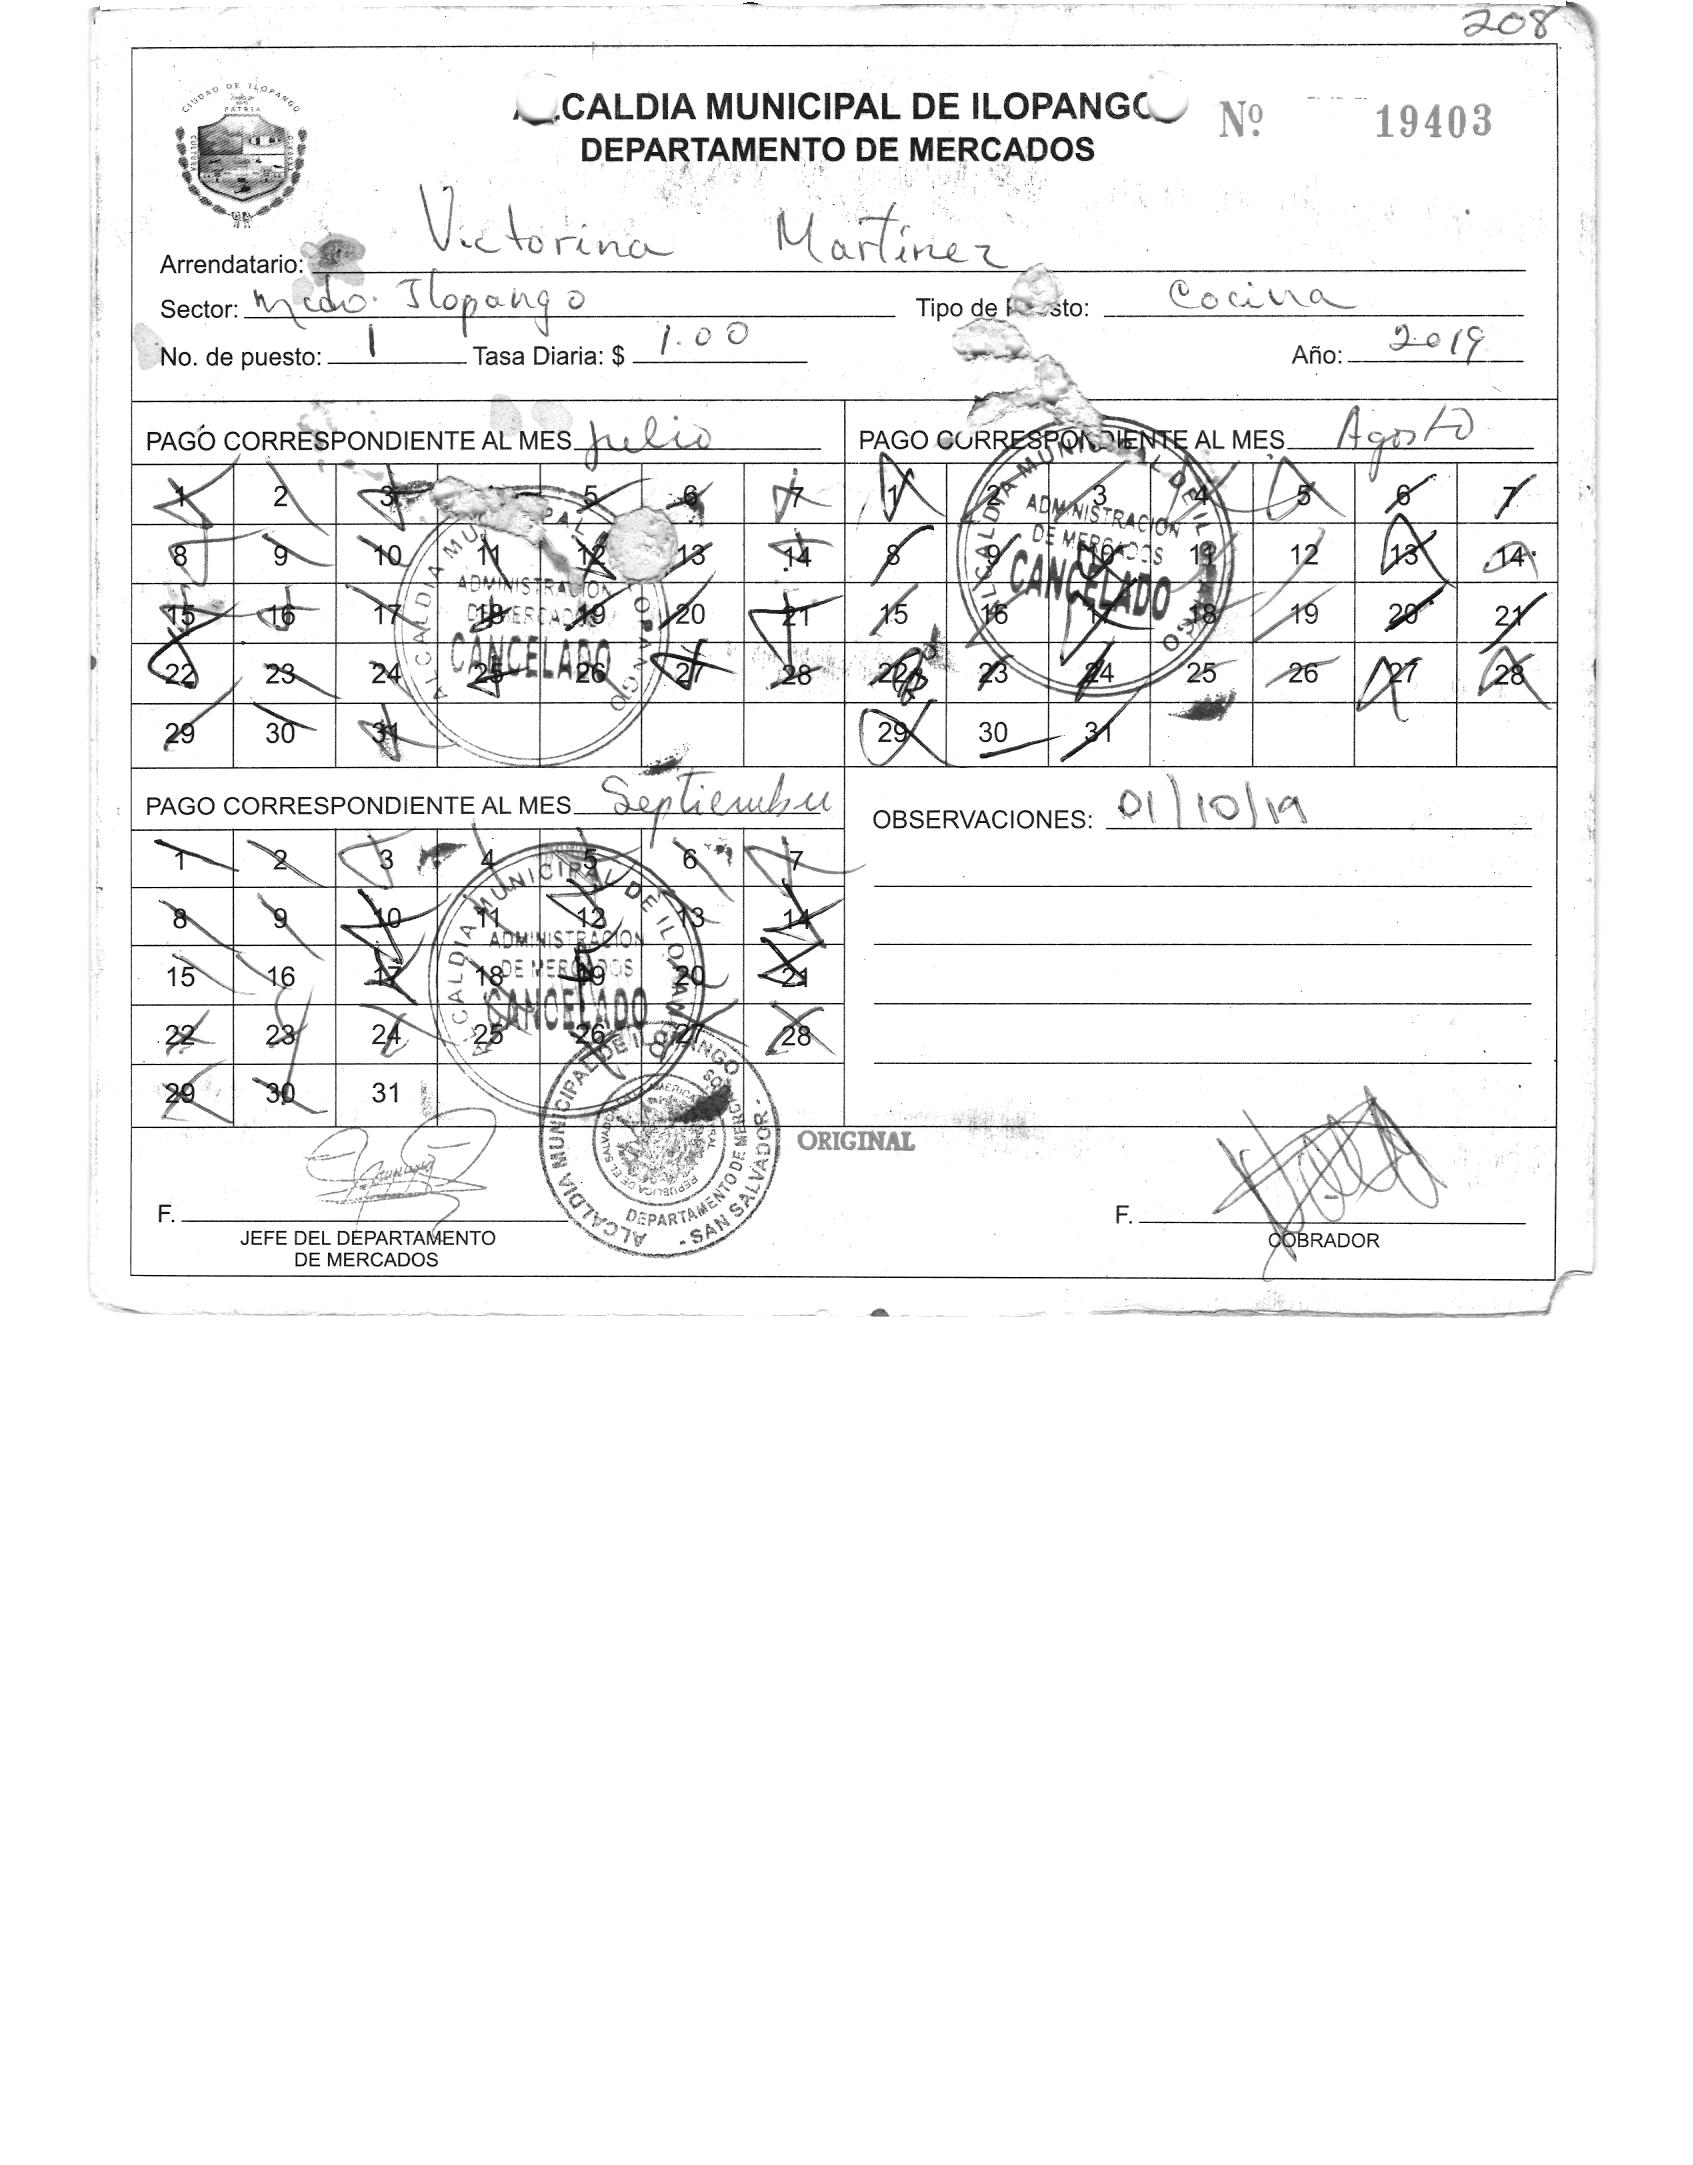 208
CIUDAD DE ILOPANGO
PATRIA
CALDIA MUNICIPAL DE ILOPANGO
DEPARTAMENTO DE MERCADOS
Nº 19403
Arrendatario: Victorina Martínez
Sector: Mcdo. Ilopango Tipo de sto: Cocina
No. de puesto: 1 Tasa Diaria: $ 1.00 Año: 2019
PAGO CORRESPONDIENTE AL MES Julio
1 2 3 5 6 7
8 9 10 11 12 13 14
15 16 17 18 19 20 21
22 23 24 25 26 27 28
29 30 31
ADMINISTRACION
DE MERCADOS
CANCELADO
PAGO CORRESPONDIENTE AL MES Agosto
1 2 3 4 5 6 7
8 9 10 11 12 13 14
15 16 17 18 19 20 21
22 23 24 25 26 27 28
29 30 31
ALCALDIA MUNICIPAL DE ILOPANGO
ADMINISTRACION
DE MERCADOS
CANCELADO
PAGO CORRESPONDIENTE AL MES Septiembre
1 2 3 4 5 6 7
8 9 10 11 12 13 14
15 16 17 18 19 20 21
22 23 24 25 26 27 28
29 30 31
ALCALDIA MUNICIPAL DE ILOPANGO
ADMINISTRACION
DE MERCADOS
CANCELADO
OBSERVACIONES: 01/10/19
ALCALDIA MUNICIPAL DE ILOPANGO
DEPARTAMENTO DE MERCADOS
- SAN SALVADOR -
ORIGINAL
F.
JEFE DEL DEPARTAMENTO
DE MERCADOS
F.
COBRADOR